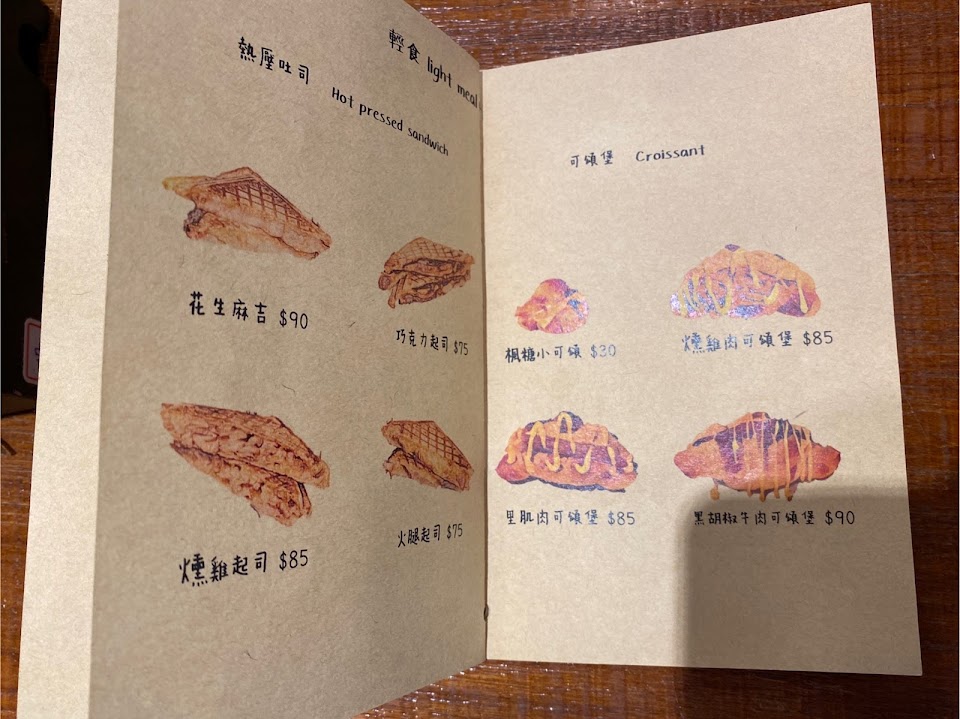 輕食 light meal
熱壓吐司 Hot pressed sandwich
花生麻吉 $90
巧克力起司 $75
燻雞起司 $85
火腿起司 $75
可頌堡 Croissant
楓糖小可頌 $30
燻雞肉可頌堡 $85
里肌肉可頌堡 $85
黑胡椒牛肉可頌堡 $90